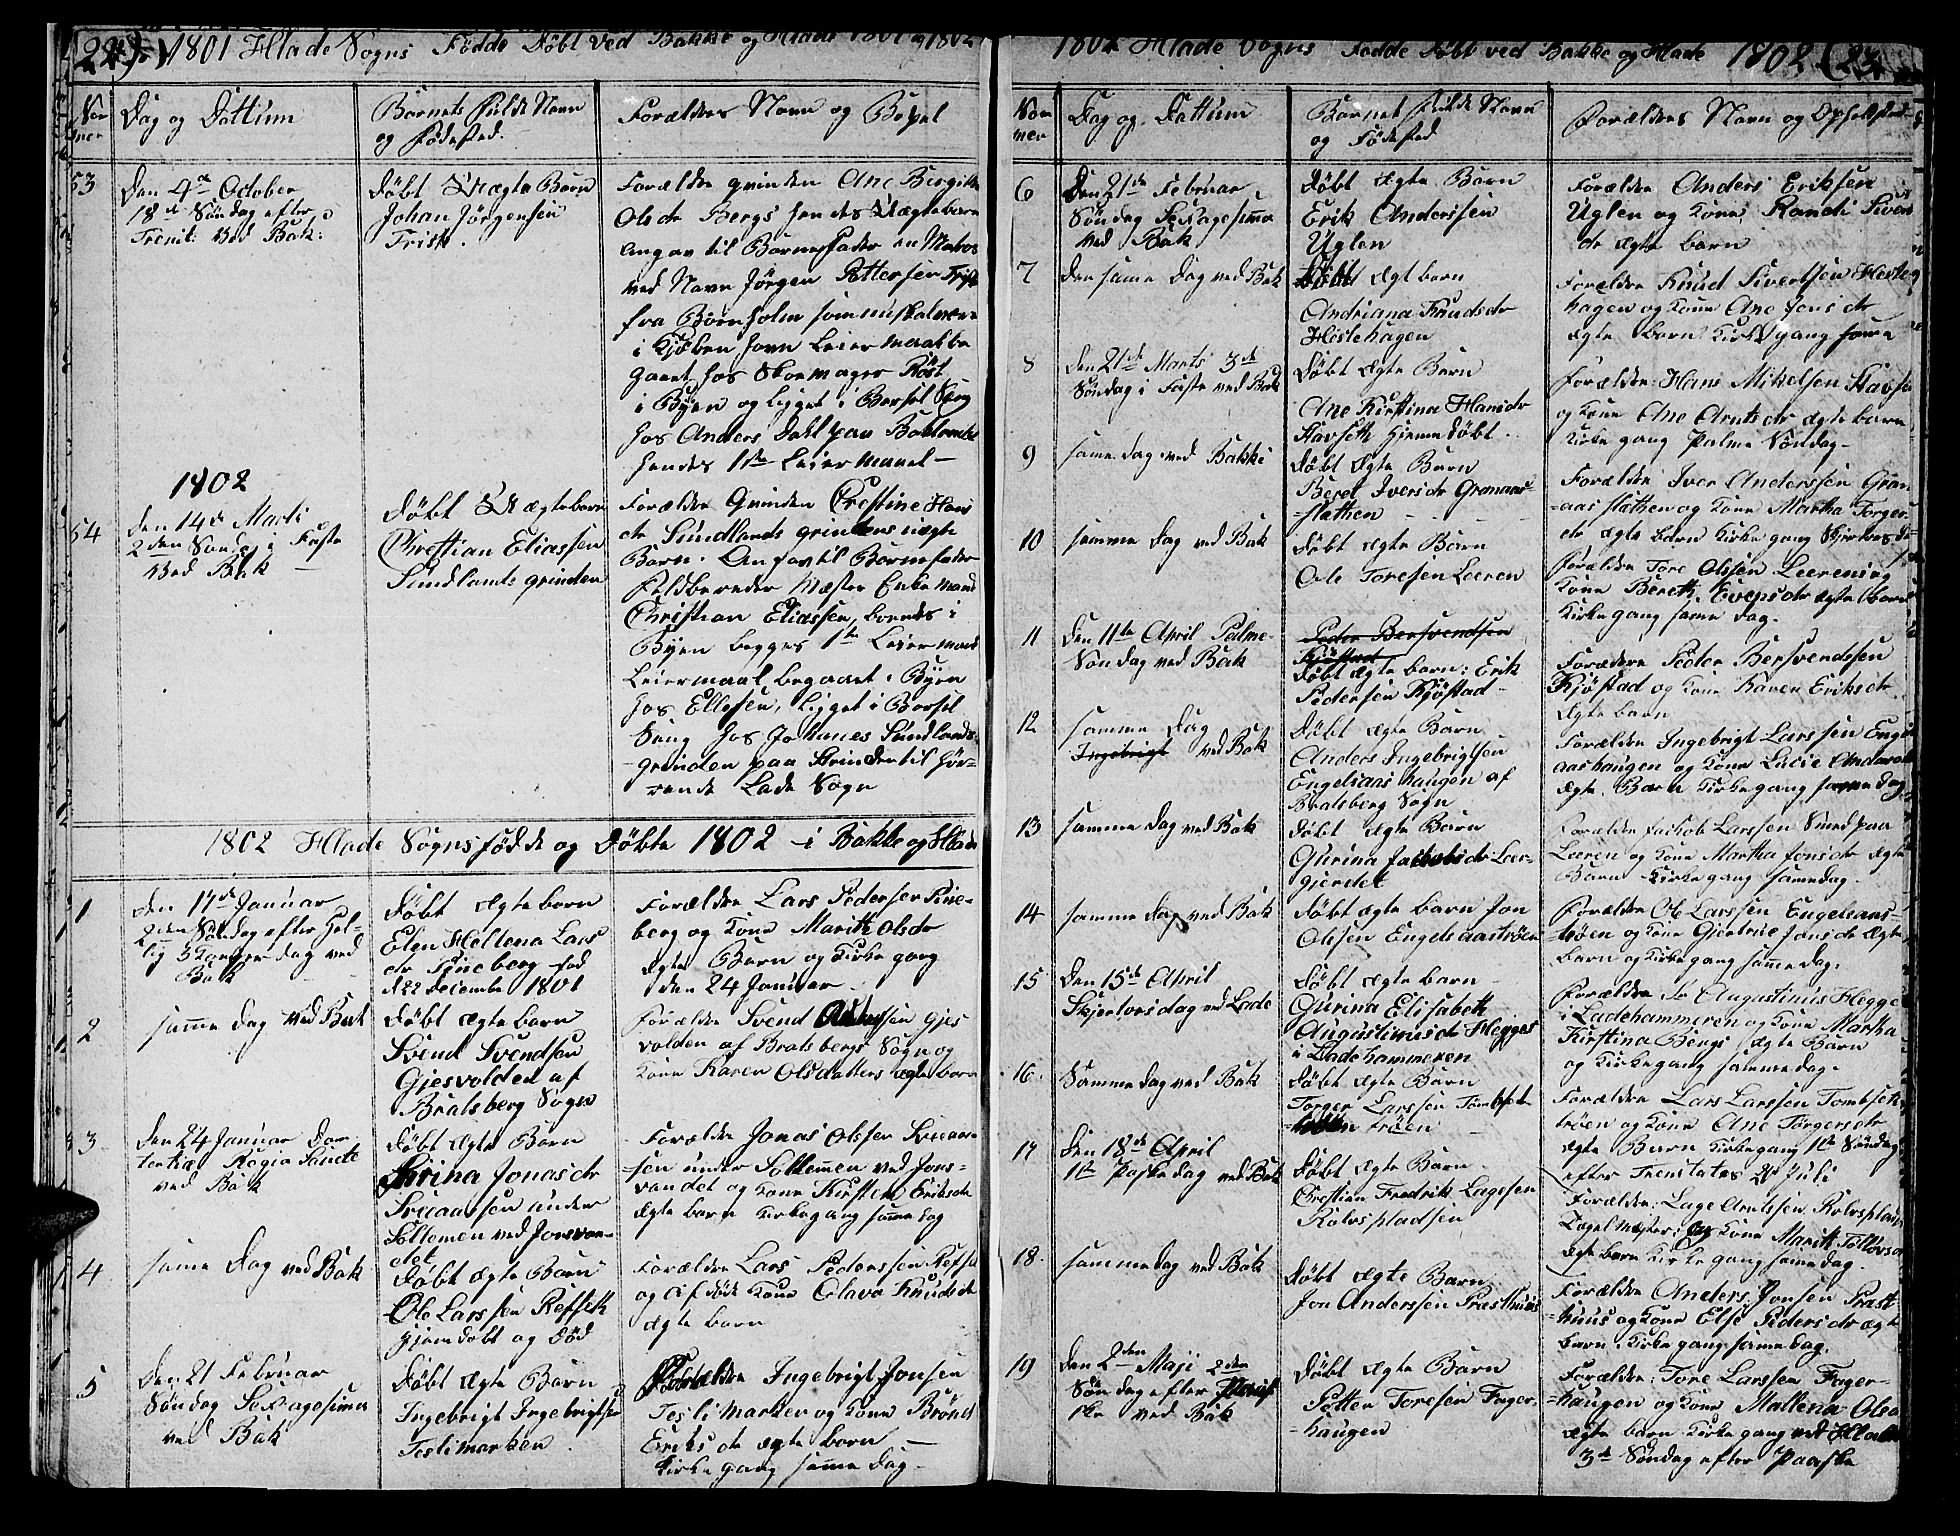 22) 1801 Hlade Sogns Födde Döbt ved Bakke og Hlade 1801 og 1802
Dag og Dattum
Barnets fulde Navn
og Födested.
Forældres Navn og Bopæl
53
Den 4de October
18de Söndag efter
Trenit: Ved Bak:
Döbt Uægte Barn
Johan Jörgensen
Frisk.
Forældre qvinden Ane Bergitte
Olsdr Bergs hendes Uægte barn
Angav til Barnefader en Matros
ved Navn Jörgen Pettersen Frisk
fra Bornholm som nu skal være
i Kjöbenhavn Leiermaal be
gaaet hos Skoemager Röst
i Byen og ligget i Barsel Seng
hos Anders Dahl paa Baklandet
hendes 1ste Leiermaal -
1802
54
Den 14de Marti
2den Söndag i Faste
Ved Bak -
Döbt Uægte barn
Chrestian Eliassen
Sundlands grinden
Forældre Qvinden Chrestine Hans
dr Sundlands grindens uægte
Barn. Angav til Barnefader
Feldbereder Mæster Enkemand
Christian Eliassen, boende i
Byen begges 1ste Leiermaal
Leiermaal begaaet i Byen
hos Ellesen, Ligget i Barsel
Seng hos Johanes Sundlands-
grinden paa Strinden til hör-
rende Lade Sogn
1802 Hlade Sogns födde og Döbte 1802 - i Bakke og Hlade
1
Den 17de Januar
2den Söndag efter Hel-
lig 3 Konger dag ved
Bak
Döbt ægte barn
Elen Hellena Lars
dr Pineberg föd
d. 22 December 1801
Forældre Lars Pedersen Pine-
berg og Kone Marith Olsdr
Ægte Barn og Kirke gang
den 24 Januar
2
samme dag ved Bak
Döbt ægte barn
Svend Svendsen
Gjesvolden af
Bratsberg Sogn
Forældre Svend
volden af Bratsbergs Sogn og
Kone Karen Olsdatters ægte barn
3
Den 24 Januar Dom
tertiæ Regia Sancte
ved Bak
Döbt ægte Barn
Jonasdr
under
Sollemen ved Jonsvan-
det
Forældre Jonas Olssen
sen under Sollemen ved Jons-
vandet og Kone Kirsten Eriksdr
Ægte barn Kirkegang samme dag
4
samme Dag ved Bak
Döbt ægte Barn
Ole Larssen Refseth
hjemdöbt og död
Forældre Lars Pederssen Refset
og afdöde Kone Olava Knudsdr
ægte barn
5
Den 21 Februar
Söndag Sexagesima
ved Bak
Döbt ægte Barn
Ingebrigt Ingebrigtsen
Teslimarken
Forældre Ingebrigt Jonsen
Teslimarken og Kone
Eriksdr ægte barn -
Kirke gang samme dag -
1802 Hlade Sogns Födde Döbt ved Bakke og Hlade 1802 (23
Dag og Dattum
Barnet fulde Navn
og Födested
Forældres Navn og Opholdsted
6
Den 21de Februar
Söndag Sexagesima
ved Bak
Döbt ægte Barn
Erik Anderssen
Uglen
Forældre Anders Eriksen
Uglen og Kone Randi Sivers
dr ægte barn
7
Den samme Dag ved Bak
Döbt ægt barn
Andriana Knudsdr
Hestehagen
Forældre Knud Sivertsen Heste
hagen og Kone Ane Jonsdr
ægte barn Kirkegang samme
8
Den 21de Marts 3de
Söndag i Faste ved Bak
Döbt ægte Barn
Ane Kirstina Hansdr
Stavseth hjemedöbt.
Forældre Hans Mikelsen Stavse
og Kone Ane Arntsdr ægte barn
Kirke gang Palme Söndag-
9
samme dag ved Bakke
Döbt ægte Barn
Beret Iversdr Granaas-
=slætten
Forældre Iver Anderssen Gran-
=aasslætten og Kone Martha Torger
dr ægte barn Kirkegang
10
samme dag ved Bak
Döbt ægte Barn
Ole Toresen Leeren
Forældre Tore Olssen Leeren og
Kone Bereth dr ægte barn
Kirke gang samme dag.
11
Den 11te April Palme-
Söndag ved Bak
Peder Bersvendsen
Kjöstad
Döbt ægte barn: Erik
Pedersen Kjöstad-
Forældre Peder Bersvendssen
Kjöstad og Kone Karen Eriksdr
Ægte barn
12
samme Dag
Ingebrigt ved Bak
Döbt ægte Barn
Anders Ingebrigtsen
Engelsaashaugen af
Bratsberg Sogn
Forældre Ingebrigt Larssen Engels
aashaugen og Kone Lucie Andersdr
ægte Barn Kirkegang samme dag
13
samme dag ved Bak
Döbt ægte Barn
Gurina Jachobsdr Leer-
gjerdet
Forældre Jachob Larssen Smed paa
Leeren og Kone Martha Jonsdr ægte
Barn Kirke gang samme dag
14
samme dag ved Bak
Döbt ægte barn Jon
Olssen Engelsaaströen
Forældre Ole Larssen Engelsaas-
tröen og Kone Gjertrue Jonsdr ægte
barn og Kirkegang samme dag.
15
Den 15de April
Skjertorsdag ved Lade
Döbt ægte barn
Gurina Elisabeth
Augustinusdr Hegges
i Ladehammeren
Forældre Augustinus Hegge
i Ladehammeren og Kone Martha
Kirstina Bergs ægte Barn
og Kirkegang samme dag.
16
Samme dag ved Bak
Döbt ægte Barn
Torger Larssen Tombset
tröen
Forældre Lars Larssen Tombset
tröen og Kone Ane Törgersdr
ægte Barn Kirkegang 1ste Söndag
efter Trenitates Juli
17
Den 18de April
1st Paaskedag ved Bak
Döbt ægte Barn
Chrestian Fredrik Lagessen
Rotvoldsen
Forældre: Lage Arntssen
og Kone Marith
Ægte barn Kirkegang samme dag.
18
samme dag ved Bak
Döbt ægte Barn
Jon Anderssen Præsthuus
Forældre Anders Jonsen Præst
huus og Kone Else Pedersdr ægte
barn Kirkegang samme dag.
19
Den 2den Maji 2den
Söndag efter
ved Bak
Döbt ægte Barn
Petter Toresen Fager-
=haugen
Forældre: Tore Larssen Fager-
=haugen og Kone Mallena Olsd
ægte barn Kirke gang ved Hlade
3de Söndag efter Paaske